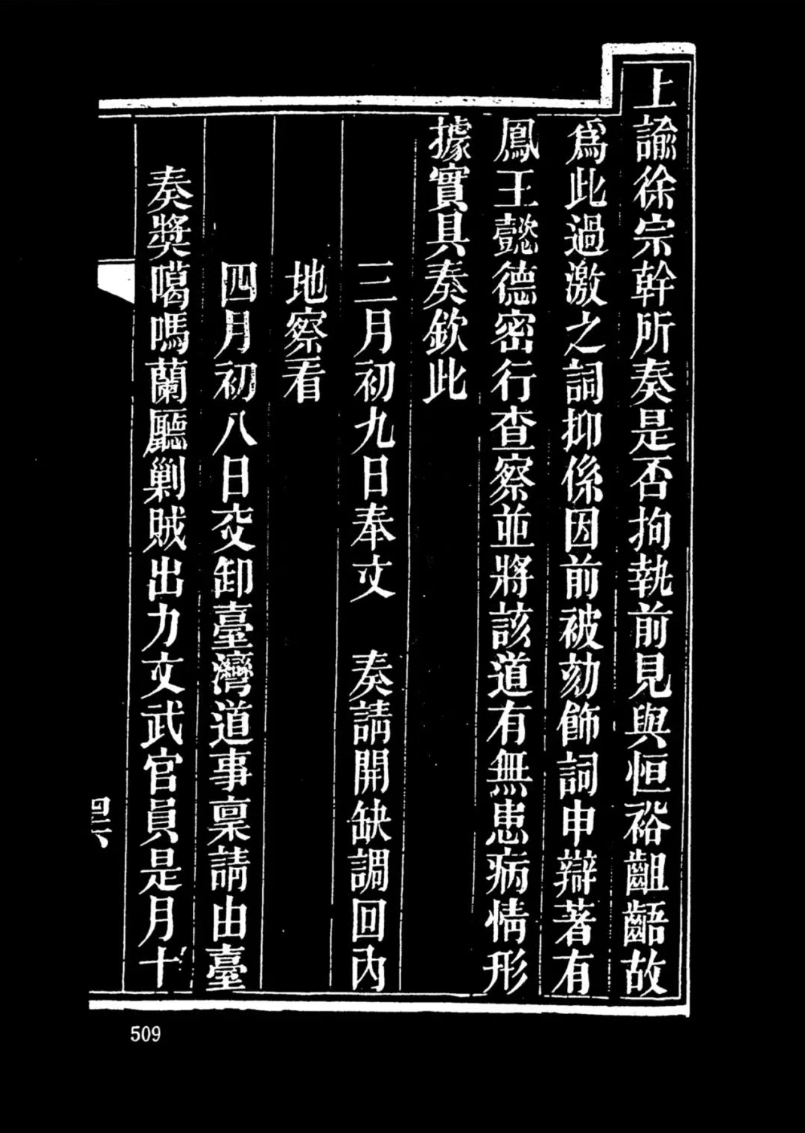 上諭徐宗幹所奏是否拘執前見與恒裕齟齬故
爲此過激之詞抑係因前被劾飾詞申辯著有
鳳王懿德密行查察並將該道有無患病情形
據實具奏欽此
三月初九日奉文　奏請開缺調回內
地察看
四月初八日交卸臺灣道事稟請由臺
奏獎噶嗎蘭廳剿賊出力文武官員是月十
四六
509